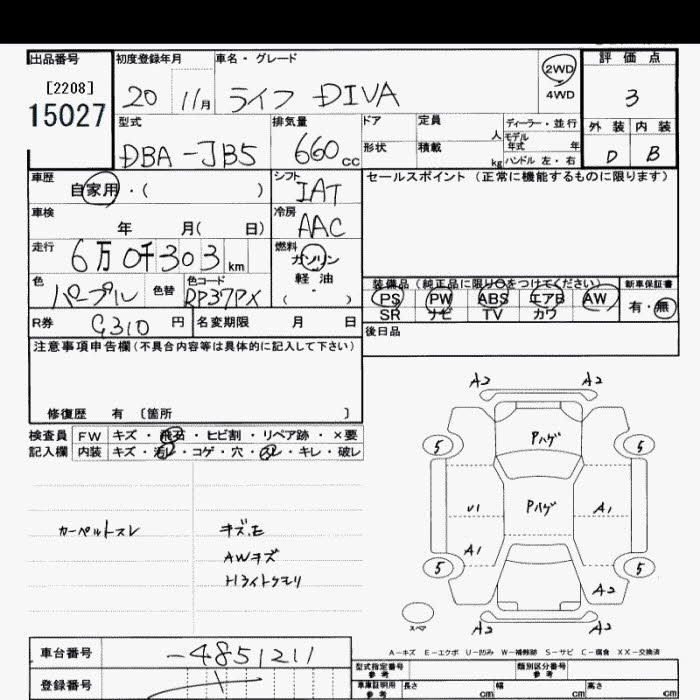 出品番号 初度登録年月 車名・グレード 2WD 評価点
[2208] 20 11月 ライフ DIVA 4WD 3
15027 型式 排気量 ドア 定員 人 ディーラー・並行 外装 内装
DBA-JB5 660cc 形状 積載 kg モデル年式 年 D B
ハンドル 左・右
車歴 自家用・( ) シフト IAT セールスポイント (正常に機能するものに限ります)
車検 年 月( 日) 冷房 AAC
走行 6万0千303km 燃料 ガソリン
軽油
( ・ )
色 パープル 色替 色コード RP37PX 装備品 (純正品に限り○をつけてください) 新車保証書
PS PW ABS エアB AW 有・無
SR ナビ TV カワ
R券 9310 円 名変期限 月 日 後日品
注意事項申告欄 (不具合内容等は具体的に記入して下さい)
修復歴 有 〔箇所 〕
検査員 FW キズ・飛石・ヒビ割・リペア跡・×要
記入欄 内装 キズ・汚レ・コゲ・穴・スレ・キレ・破レ
カーペルトスレ キズ.E
AWキズ
Hライトクモリ
A2 A2
5 Pハゲ 5
U1 Pハゲ A1
A1
5 5
A2
スペア A2 A2
A-キズ E-エクボ U-凹み W-補修跡 S-サビ C-腐食 XX-交換済
車台番号 -4851211 型式指定番号 参考 類別区分番号 参考
登録番号 車庫証明用 参考 長さ cm 幅 cm 高さ cm